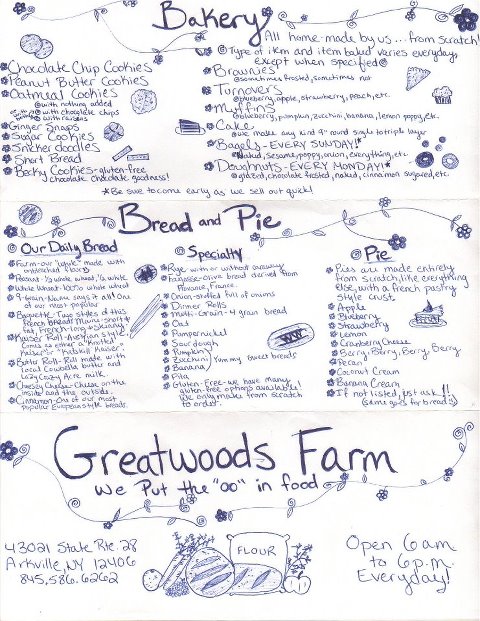 Bakery
All home-made by us... from scratch!
Type of item and item baked varies everyday,
except when specified
Chocolate Chip Cookies
Peanut Butter Cookies
Oatmeal Cookies
with nothing added
with chocolate chips
with raisins
Ginger Snaps
Sugar Cookies
Snickerdoodles
Short Bread
Becky Cookies-gluten-free
chocolate chocolate goodness!
Brownies
sometimes frosted, sometimes not
Turnovers
blueberry, apple, strawberry, peach, etc.
Muffins
blueberry, pumpkin, zucchini, banana, lemon poppy, etc.
Cake
we make any kind 9" round single to triple layer
Bagels-EVERY SUNDAY!*
naked, sesame, poppy, onion, everything, etc.
Doughnuts-EVERY MONDAY!*
glazed, chocolate frosted, naked, cinnamon sugared, etc.
*Be sure to come early as we sell out quick!
Bread and Pie
Our Daily Bread
made with
unbleached flour
Peasant-½ whole wheat, ½ white
Whole Wheat-100% whole wheat
9-Grain-Name says it all! One
of our most popular
Baguette-Two styles of this
French bread! Mama-short &
fat, French-long & skinny
Kaiser Roll-Austrian style!
Comes as either a "Knotted
Kaiser" or "Kutskill Kaiser".
Butter Roll-Roll made with
local Cowbella butter and
Crazy Acre milk.
Cheesy Cheese-Cheese on the
inside and the outside.
Cinnamon-One of our most
popular European style breads.
Specialty
Rye with or without caraway
Fougasse-olive bread derived from
Provence, France.
Onion-stuffed full of onions
Dinner Rolls
Multi-Grain-4 grain bread
Oat
Pumpernickel
Sourdough
Pumpkin
Zucchini
Banana
Yummy sweet breads
Pita
Gluten-Free-we have many
gluten-free options available!
We only make from scratch
to order.
Pie
Pies are made entirely
from scratch, like everything
else, with a french pastry
style crust.
Apple
Blueberry
Strawberry
Lemon
Cranberry Cheese
Berry, Berry, Berry, Berry
Pecan
Coconut Cream
Banana Cream
If not listed, just ask!!
(same goes for breads)
Greatwoods Farm
We Put the "oo" in food
43021 State Rte. 28
Arkville, NY 12406
845.586.6262
FLOUR
Open 6am
to 6p.m.
Everyday!